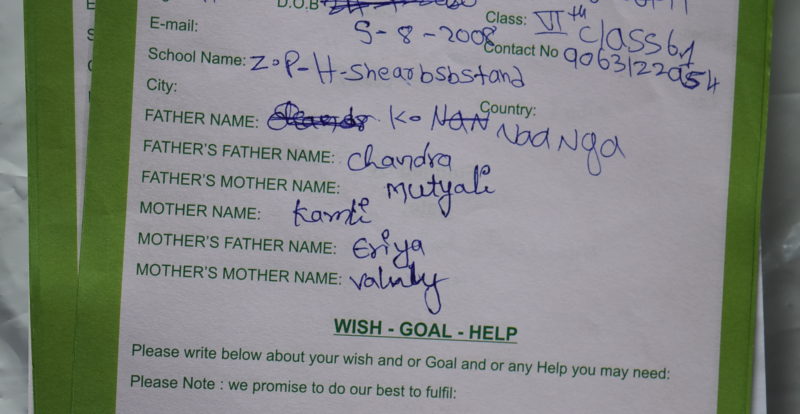 D.O.B
E-mail: 5-8-2008 Class: VIth class
Contact No 9063122054
School Name: Z.P-H-shearbsbstand
City:
Country:
FATHER NAME: K. Nadnga
FATHER'S FATHER NAME: chandra
FATHER'S MOTHER NAME: mutyali
MOTHER NAME: Kamti
MOTHER'S FATHER NAME: Eriya
MOTHER'S MOTHER NAME:
WISH - GOAL - HELP
Please write below about your wish and or Goal and or any Help you may need:
Please Note : we promise to do our best to fulfil: